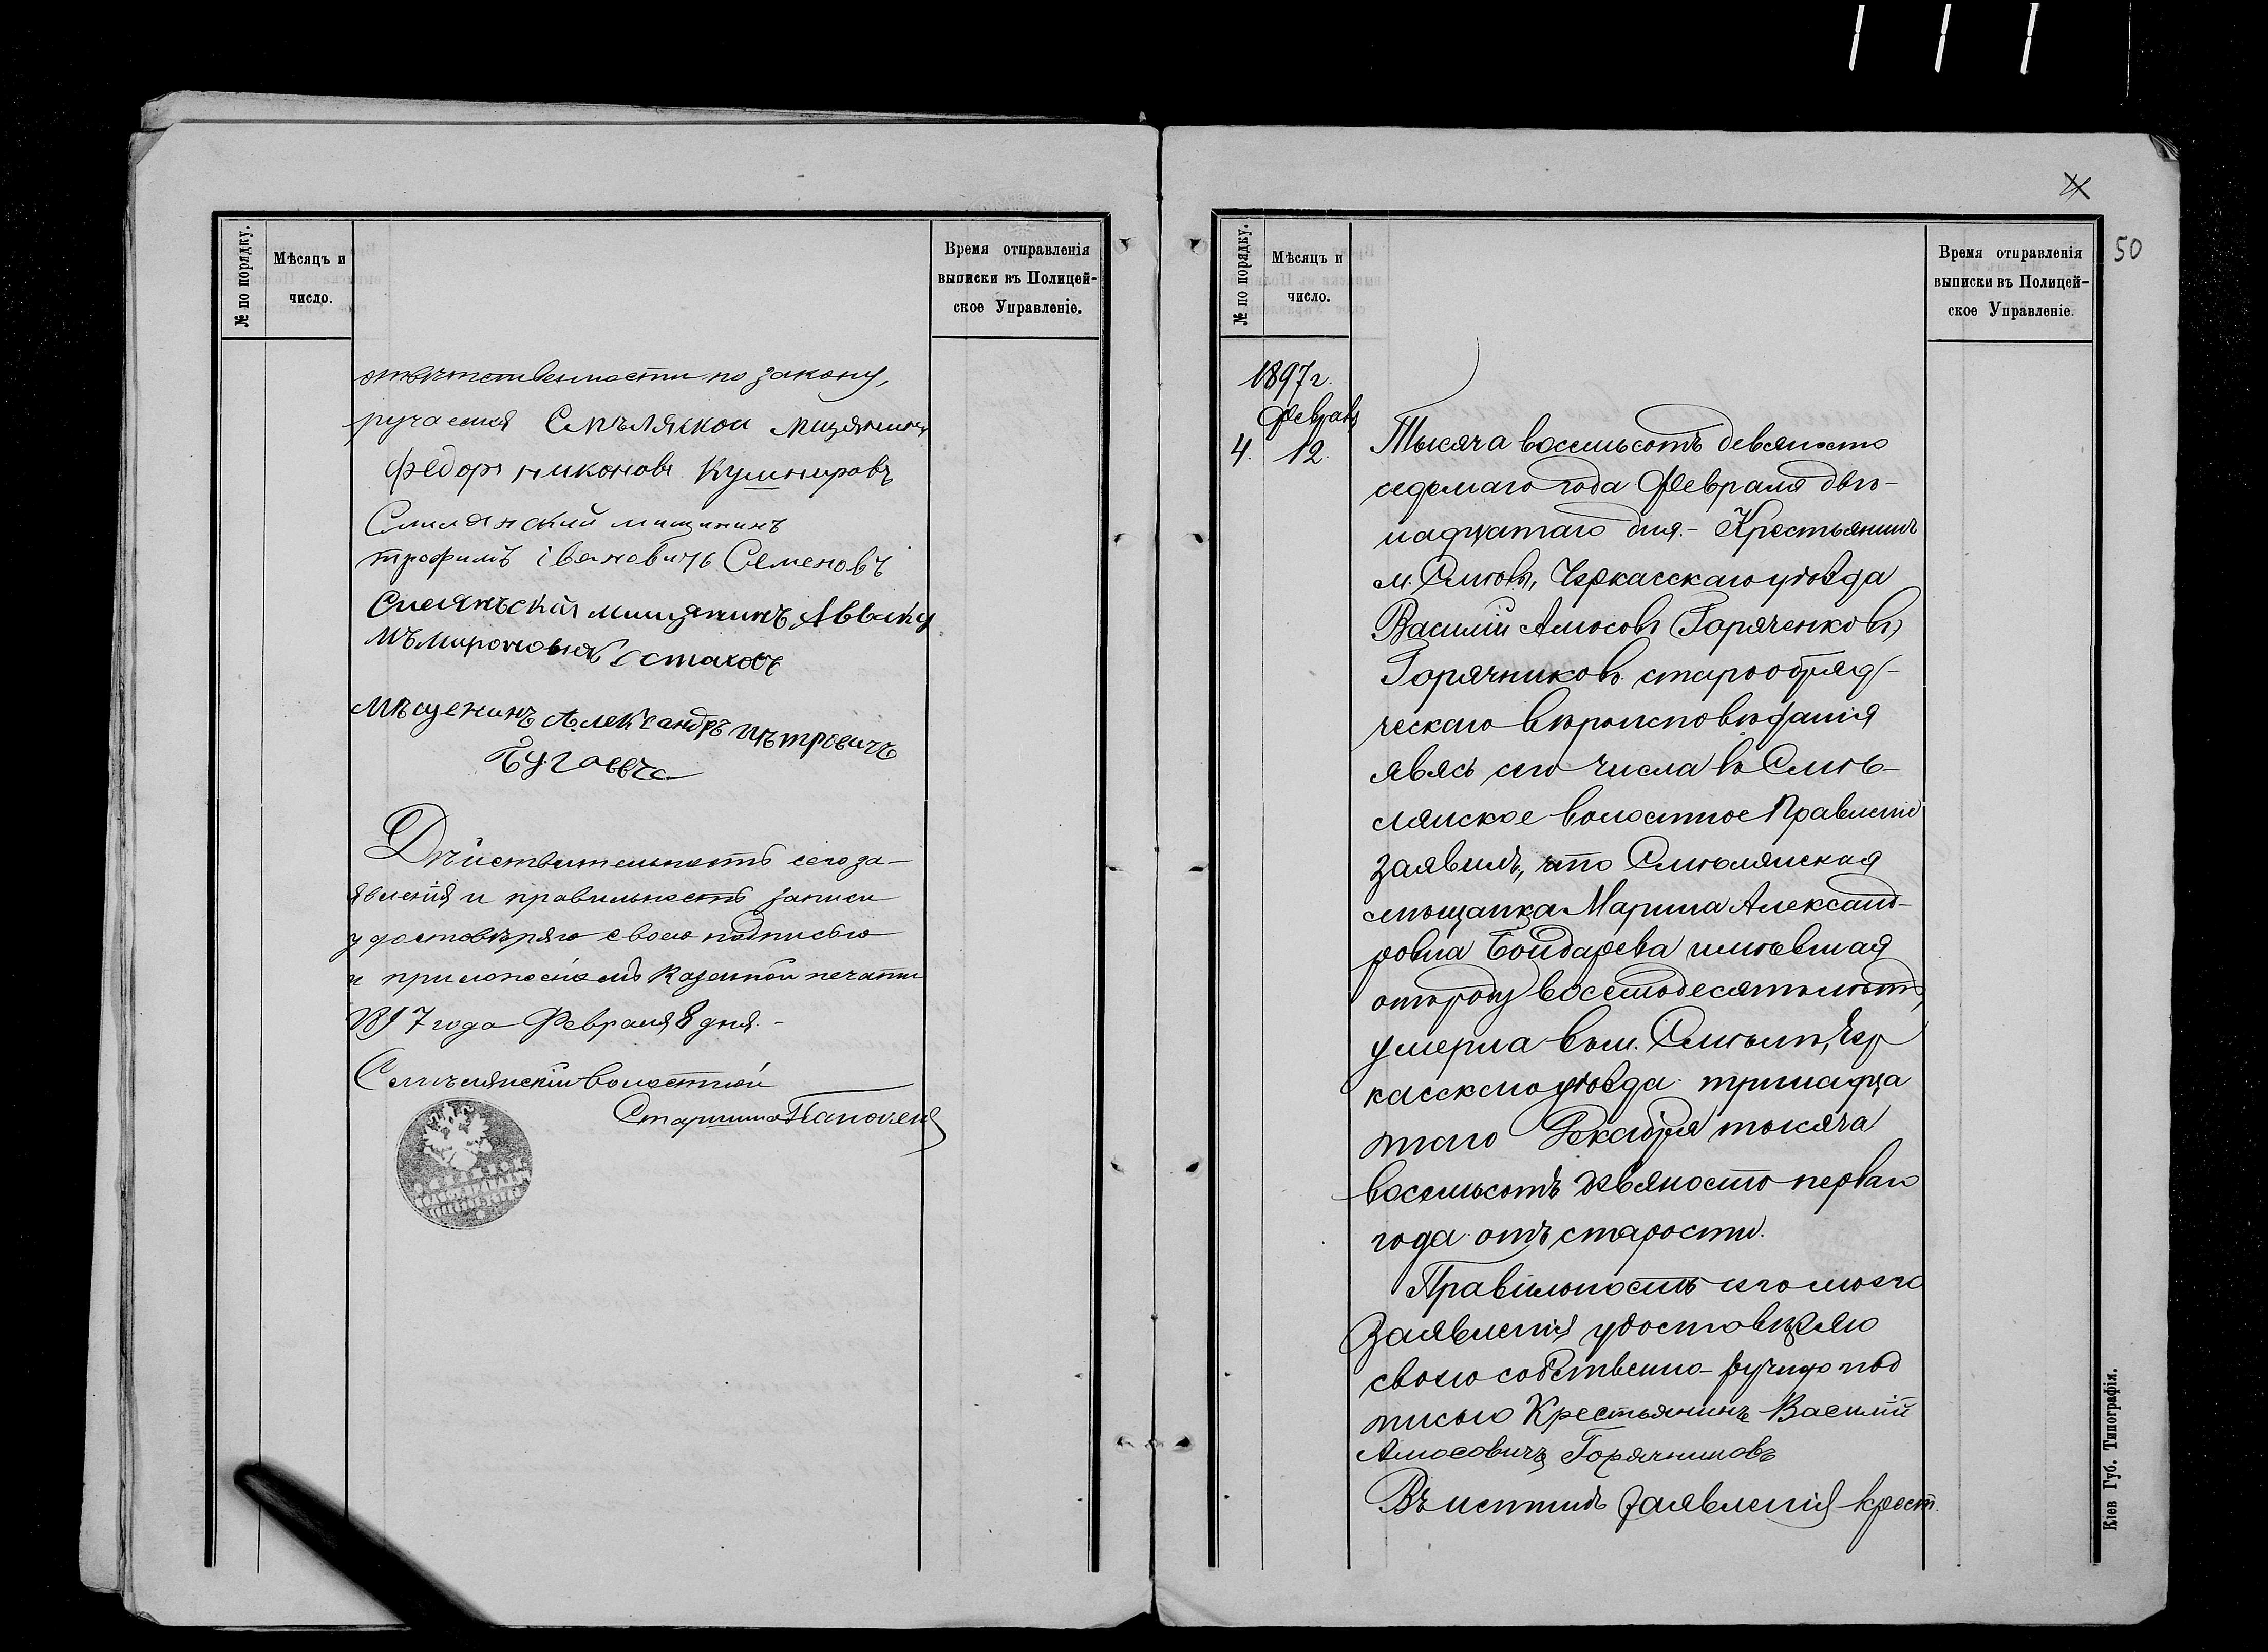 № по порядку.
Мѣсяцъ и
число.
Время отправленія
выписки въ Полицей-
ское Управленіе.
отвѣтственности по закону,
ручаемся Смѣляской мищянинъ
Федоръ никоновъ Кушнировъ
Смилянский мищининъ
трофимъ івановичь Семеновъ
Смелянъский мищянинъ Авваку
мъ мироновичъ
мѣщенинъ Александръ Петровичъ
Дѣйствительность сего за-
явленія и правильность записи
удостовѣряю своею подписью
и приложеніемъ казенной печати
1897 года Февраля 8 дня.-
Смѣлянскій волостной
Старшина
№ по порядку.
Мѣсяцъ и
число.
Время отправленія
выписки въ Полицей-
ское Управленіе.
50
1897 г.
Февраля
4. 12.
Тысяча восемьсотъ девяносто
седьмаго года Февраля две-
надцатаго дня.- Крестьянинъ
м. Смѣлы, Черкасскаго уѣзда
Василій Амосовъ (Горяченковъ)
Горячниковъ старообряд-
ческаго вѣроисповѣданія
явясь сего числа въ Смѣ-
лянское волостное Правленіе
заявилъ, что Смѣлянская
мѣщанка Марина Александ-
ровна Бондарева имѣвшая
отъ роду восемьдесятъ лѣтъ,
умерла въ м. Смѣлѣ, Чер
касскаго уѣзда тринадца
таго Декабря тысяча
восемьсотъ девяносто перваго
года отъ старости.
Правильность сего моего
заявленія удостовѣряю
своею собственно-ручною под
писью Крестьянинъ Василій
Амосовичъ Горячниковъ
Въ истинѣ заявленія крест.
Кіев Губ. Типографія.